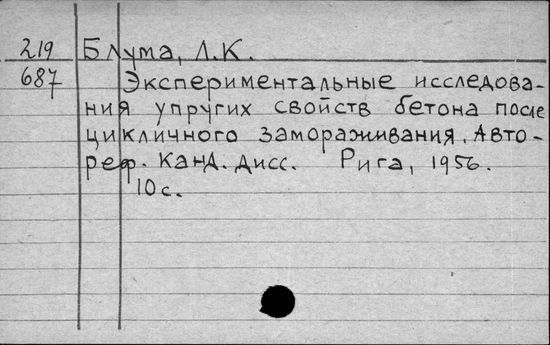 219 Блума, Л.К.
687 Экспериментальные исследова-
ния упругих свойств бетона после
цикличного замораживания. Авто-
реф. канд. дисс. Рига, 1956.
10с.